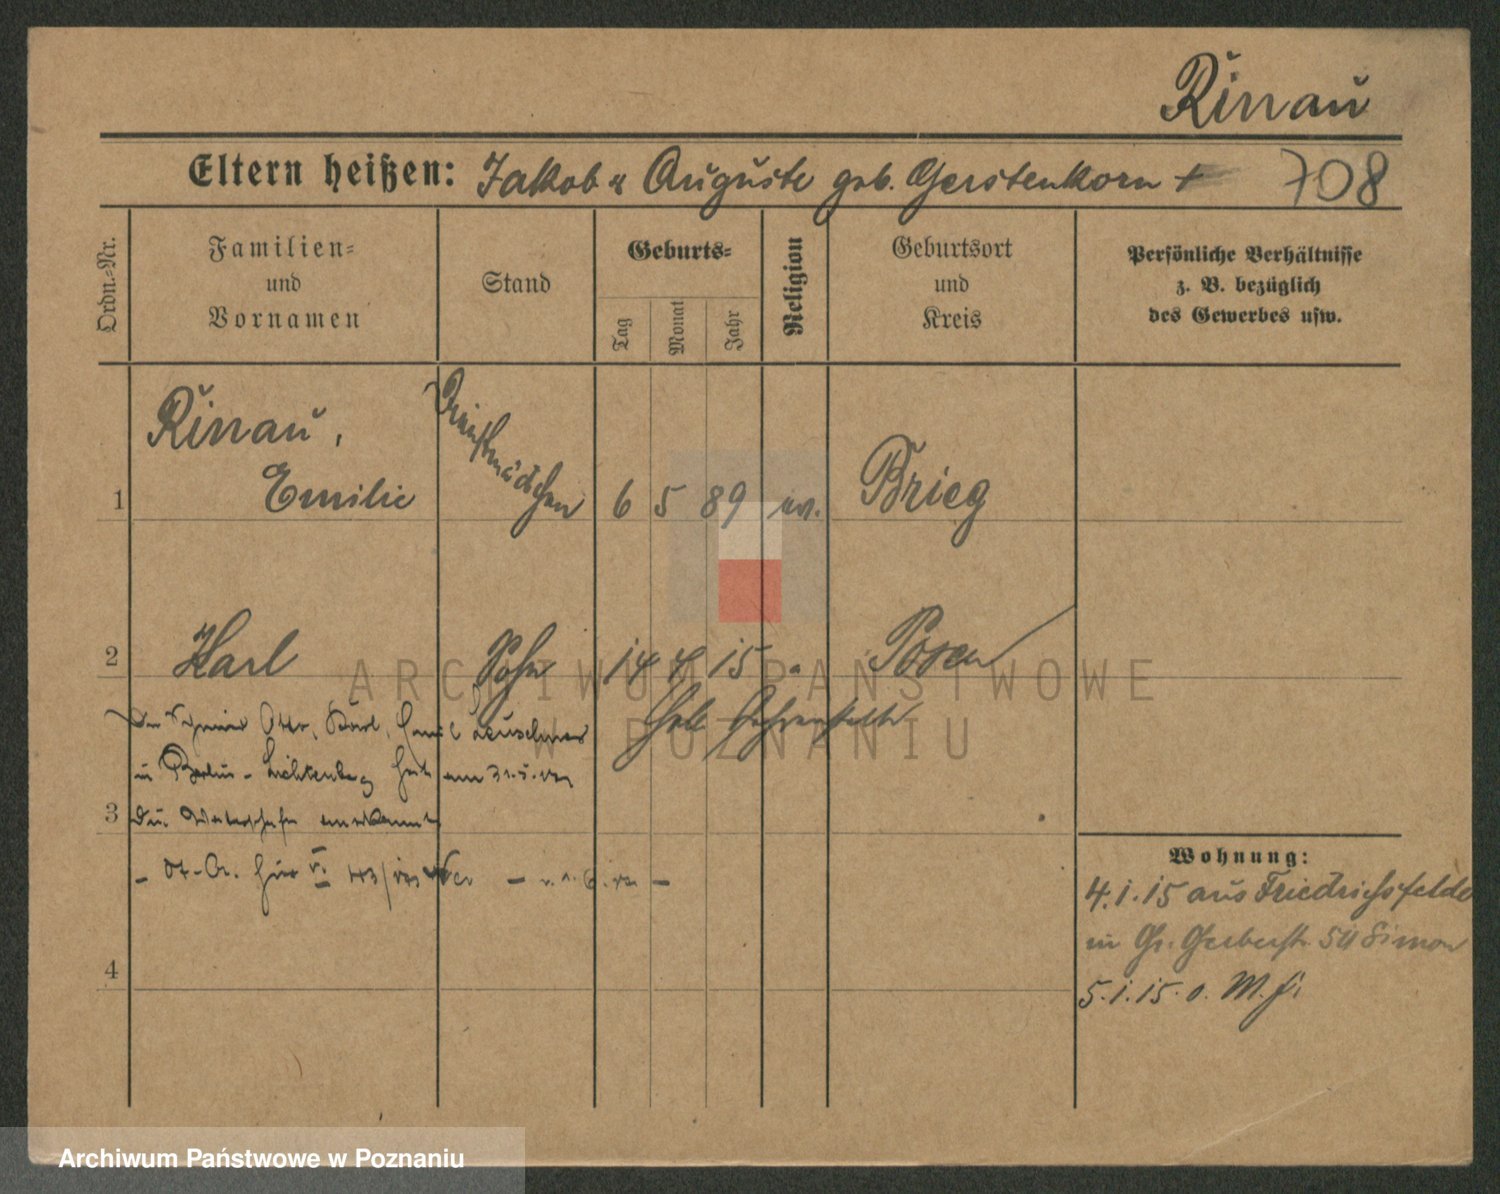 Rinau
Eltern heißen: Jakob u Auguste geb. Gerstenkorn + 708
Ordn.-Nr.
Familien-
und
Vornamen
Stand
Geburts-
Tag
Monat
Jahr
Religion
Geburtsort
und
Kreis
Persönliche Verhältnisse
z. B. bezüglich
des Gewerbes usw.
Rinau,
1 Emilie Dienstmädchen 6 5 89 ev. Brieg
2 Karl Sohn 14 4 15 " Posen
Der Otto, Karl, Emil Leuschner
in Berlin-Lichtenberg hat am 31.5.
3 Die Vaterschaft anerkannt
4
Wohnung:
4.1.15 aus Friedrichsfelde
in Gr. Gerberstr. 50 Simon
5.1.15. o. M. f.
ARCHIWUM PAŃSTWOWE
W POZNANIU
Archiwum Państwowe w Poznaniu